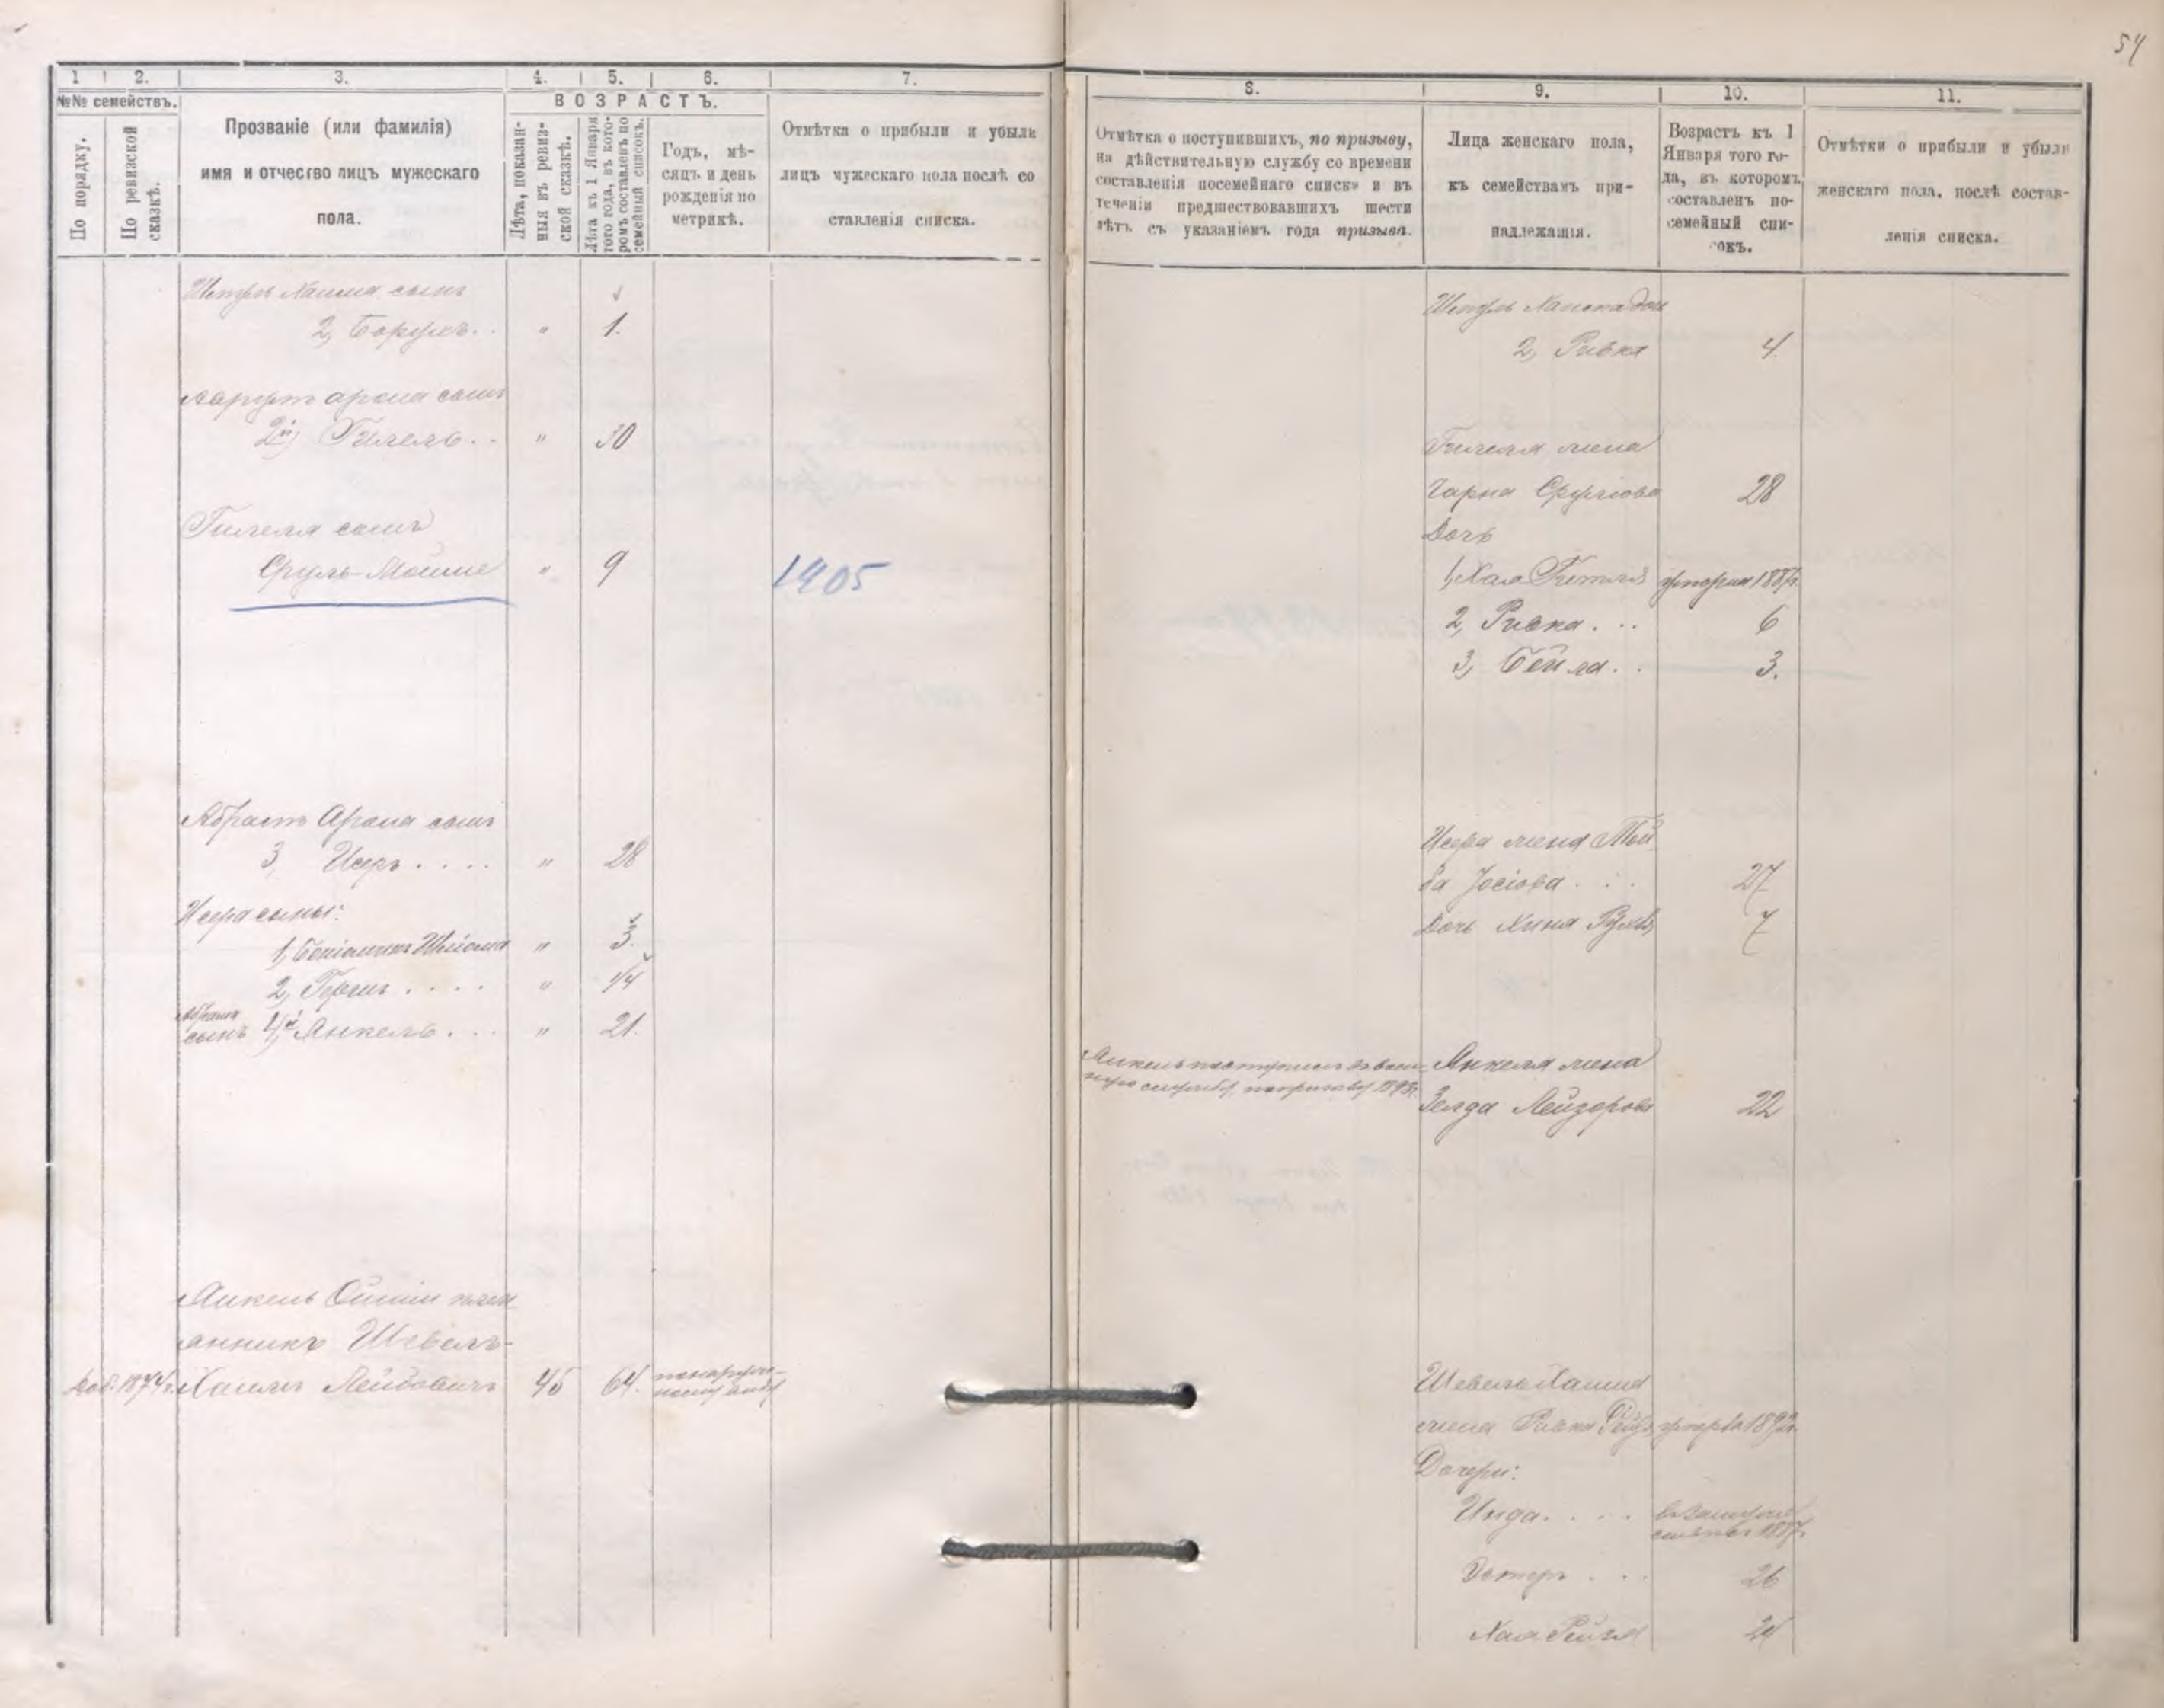 54
1 2. 3. 4. 5. 6. 7.
№№ семействъ.
По порядку.
По ревизской сказкѣ.
Прозваніе (или фамилія)
имя и отчество лицъ мужескаго
пола.
ВОЗРАСТЪ.
Лѣта, показан-
ныя въ ревиз-
ской сказкѣ.
Лѣта къ 1 Января
того года, въ кото-
ромъ составленъ по
семейный списокъ.
Годъ, мѣ-
сяцъ и день
рожденія по
метрикѣ.
Отмѣтка о прибыли и убыли
лицъ мужескаго пола послѣ со
ставленія списка.
сынъ
2, Борухъ. . " 1.
сынъ
2й) Гилель. . " 30
Гилеля сынъ
Сруль-Мошие " 9 1905
Абрамъ Арона сынъ
3, Исеръ . . . . " 28
Исера сыны:
1, " 3.
2, Гершъ . . . . " 1/4
Абрама
сынъ 4й Янкель. . . " 21.
Янкель племя
анникъ Шевель-
Доб. 1874г. Хаимъ Лейбовичъ 45 64. по наруж-
ному виду
8. 9. 10. 11.
Отмѣтка о поступившихъ, по призыву,
на дѣйствительную службу со времени
составленія посемейнаго списка и въ
теченіи предшествовавшихъ шести
лѣтъ съ указаніемъ года призыва.
Лица женскаго пола,
къ семействамъ при-
надлежащія.
Возрастъ къ 1
Января того го-
да, въ которомъ
составленъ по-
семейный спи-
сокъ.
Отмѣтки о прибыли и убыли
женскаго пола, послѣ состав-
ленія списка.
2, Ривка 4.
Гилеля жена
Чарна Срулiова 28
Дочь
1, Хая
2, Ривка. . . 6
3, Бейла. . 3.
Исера жена Той
ба Іосіова. . . 27
Дочь Хиня 7
Янкель поступилъ въ воен-
ную службу, по призыву 1893г.
Янкеля жена
Зелда Лейзорова 22
Шевель Хаима
жена Ривка умерла 1892г.
Дочери:
Инда. . . . в замужест
Эстеръ . . . 26
Хая Рейзя 24